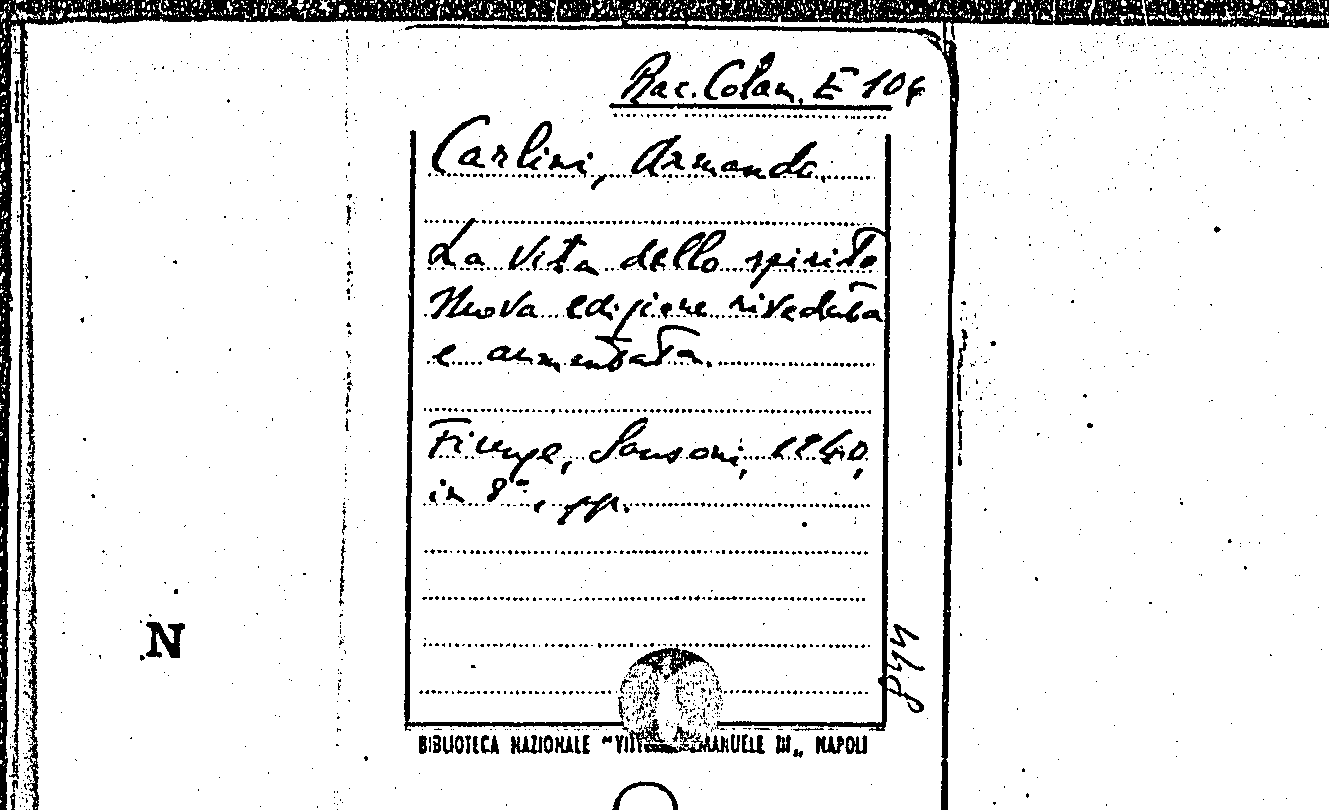 Rac. Colan. E 104
Carlini, Armando.
La vita dello spirito
Nuova edizione riveduta
e aumentata.
Firenze, Sansoni, 1940,
in 8°, pp.
N
BIBLIOTECA NAZIONALE "VITT EMANUELE III„ NAPOLI